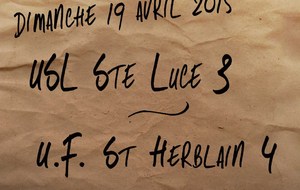 DIMANCHE 19 AVRIL 2015
USL STE LUCE 3
U.F. ST HERBLAIN 4